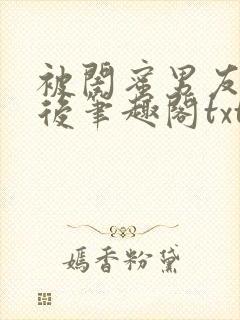 被閤蜜男友
後筆趣閣txt
嫣香粉黛